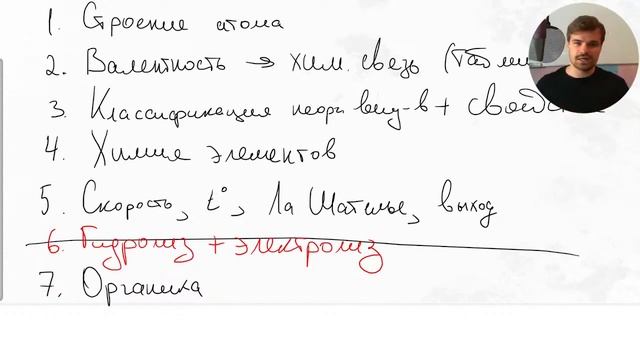 1. Строение атома
2. Валентность → хим. связь (
3. Классификация неорг вещ-в + свойства
4. Химия элементов
5. Скорость, t°, Ла Шателье, выход
6. Гидролиз + электролиз
7. Органика